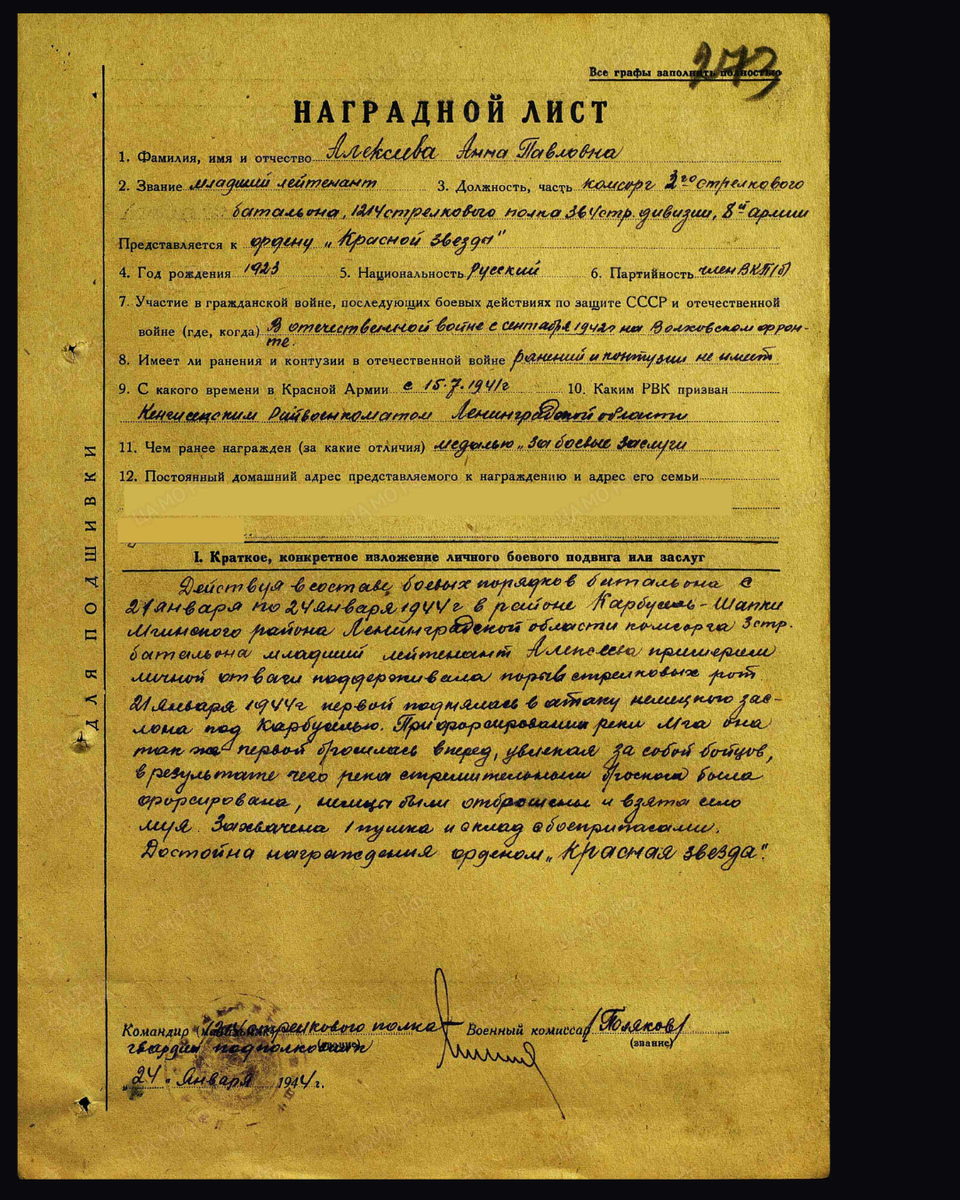 273
Все графы заполнять полностью
НАГРАДНОЙ ЛИСТ
1. Фамилия, имя и отчество Алексеева Анна Павловна
2. Звание младший лейтенант 3. Должность, часть комсорг 3го стрелкового
батальона, 1214 стрелкового полка 364 стр. дивизии, 8й армии
Представляется к ордену „Красной Звезда"
4. Год рождения 1923 5. Национальность Русский 6. Партийность член ВКП(б)
7. Участие в гражданской войне, последующих боевых действиях по защите СССР и отечественной
войне (где, когда) В отечественной войне с сентября 1942 г на Волховском фрон-
те.
8. Имеет ли ранения и контузии в отечественной войне ранений и контузии не имеет
9. С какого времени в Красной Армии с 15.7.1941 г 10. Каким РВК призван
Кенгисепским Райвоенкоматом Ленинградской области
11. Чем ранее награжден (за какие отличия) медалью „За боевые заслуги
12. Постоянный домашний адрес представляемого к награждению и адрес его семьи
I. Краткое, конкретное изложение личного боевого подвига или заслуг
Действуя в составе боевых порядков батальона с
21 января по 24 января 1944 г в районе Карбусель-Шапки
Мгинского района Ленинградской области комсорга 3 стр.
батальона младший лейтенант Алексеева примером
личной отваги поддерживала порыв стрелковых рот
21 января 1944 г первой поднялась в атаку немецкого зас-
лона под Карбуселью. При форсировании реки Мга она
так же первой бросилась вперед, увлекая за собой бойцов,
в результате чего река стремительным броском была
форсирована, немцы были отброшены и взята село
муя. Захвачена 1 пушка и склад с боеприпасами.
Достойна награждения орденом „Красная звезда".
Командир 1214 стрелкового полка Военный комиссар (Поляков)
гвардии подполковник (звание) (звание)
„24" Января 1944 г.
ДЛЯ ПОДШИВКИ
ЦАМО.РФ